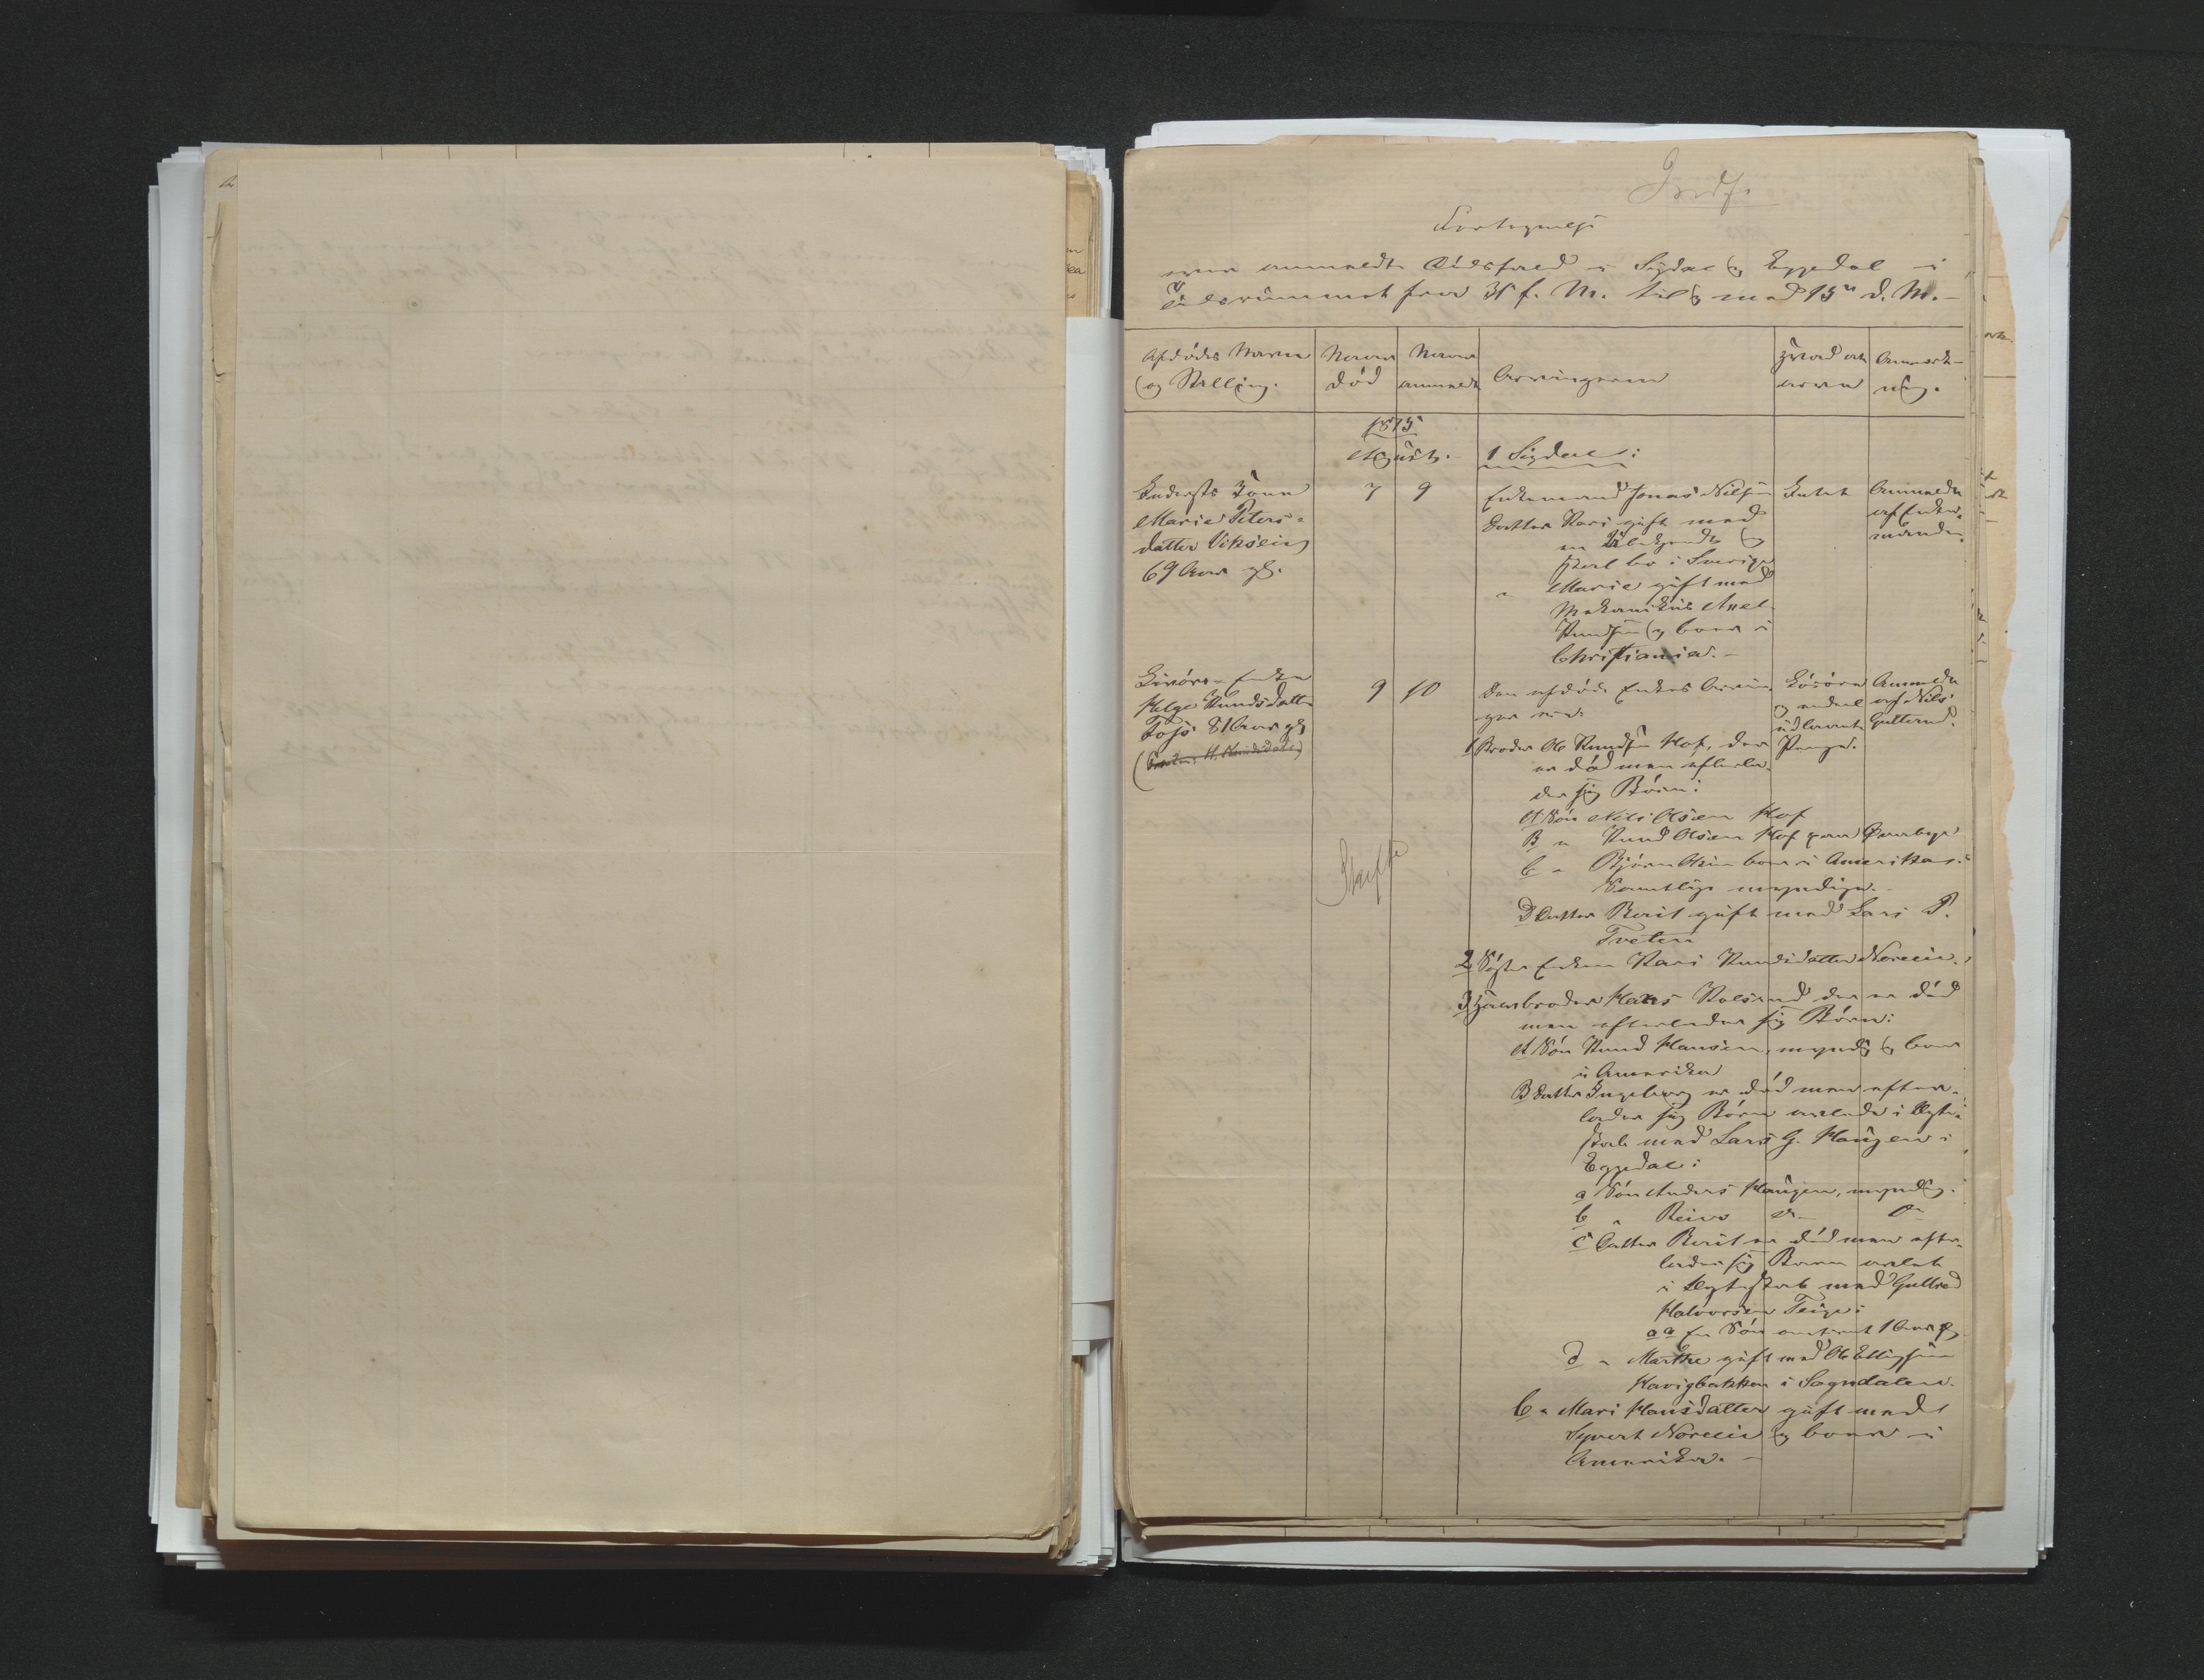 Indf.
Fortegnelse
over anmeldte Dødsfald i Sigdal og Eggedal i
Tidsrummet fra 31 f. M. til og med 15de d. M.
Afdødes Navn
og Stilling.
Naar
død
Naar
anmeldt
Arvingerne
Hvad at
arve
Anmærk-
ning.
1875
August.
1 Sigdal:
Inderste Kone
Marie Peters-
datter Viksein
69 Aar gl.
7
9
Enkemand Jonas Nilsen
Datter Kari gift med
en Ubekjendt og
skal bo i Sverige
" Marie gift med
Mekanikus Axel
Knudsen og boer i
Christiania.
Intet
Anmeldt
af Enke-
manden
Enke
Helge Knudsdatter
Fojs 81 Aar gl.
9
10
Den afdøde Enkes Arvin-
ger ere
1 Broder Ole Knudsen Hof, der
er død men efterla-
der sig Børn:
A Søn Nils Olsen Hof
B " Knud Olsen Hof
C " Bjørn Olsen boer i Amerika
Samtlige myndige.
D Datter Berit gift med Lars P.
Tveten
2 Søster Enken Kari Knudsdatter Noreie.
3 Halvbroder Hans Kolsrud der er død
men efterlader sig Børn:
A Søn Knud Hansen, myndig og boer
i Amerika
B Datter Ingeborg er død men efter-
lader sig Børn avlede i Ægte-
skab med Lars G. Haugen i
Eggedal:
a Søn Anders Haugen, myndig.
b "
c Datter Berit er død men efter-
lader sig Barn avlet
i Ægteskab med Gulbrand
Halvorsen Teige:
aa En Søn omtrent 1 Aar gl.
d " Marthe gift med Ole Ellingsen
Kavigbakken i Sogndalen.
C " Mari Hansdatter gift med
Syvert Noreie og boer i
Amerika.
Løsøre
og endel
udlaant
Penge.
Anmeldt
af Nils
Gulbrand.
Skifte